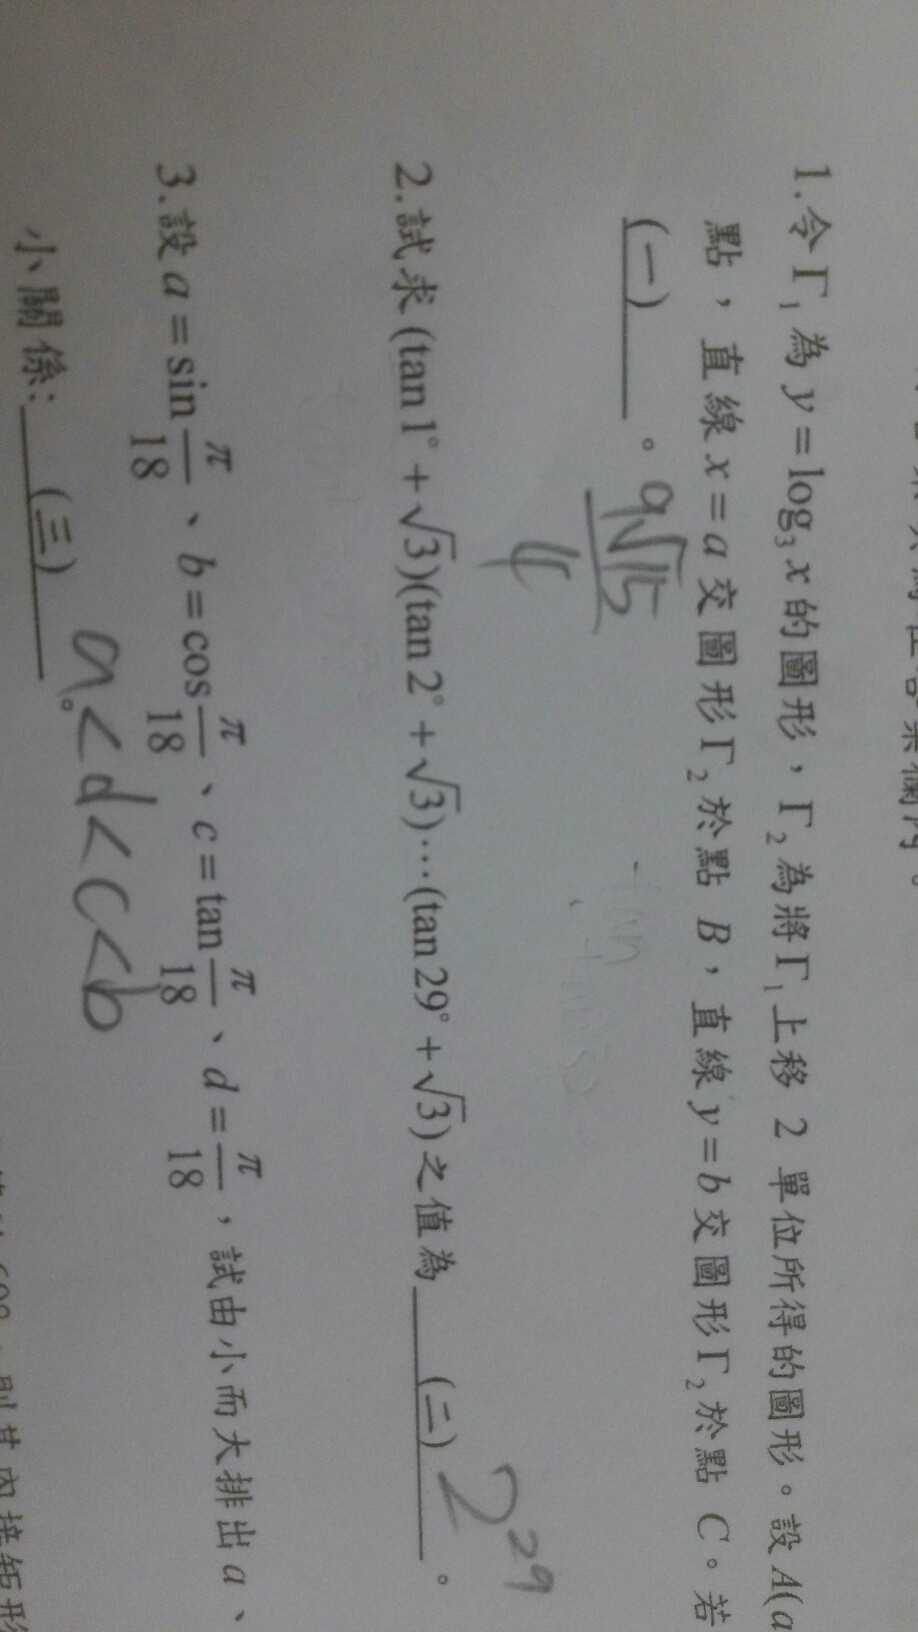 1.令Γ₁為y=log₃x的圖形，Γ₂為將Γ₁上移 2 單位所得的圖形。設A(a
點，直線x=a交圖形Γ₂於點 B，直線y=b交圖形Γ₂於點 C。若
(一)。 9√15/4
2.試求(tan1°+√3)(tan2°+√3)⋯(tan29°+√3)之值為 (二) 。 2²⁹
3.設a=sin π/18、b=cos π/18、c=tan π/18、d=π/18，試由小而大排出a、
小關係: (三) 。 a<d<c<b